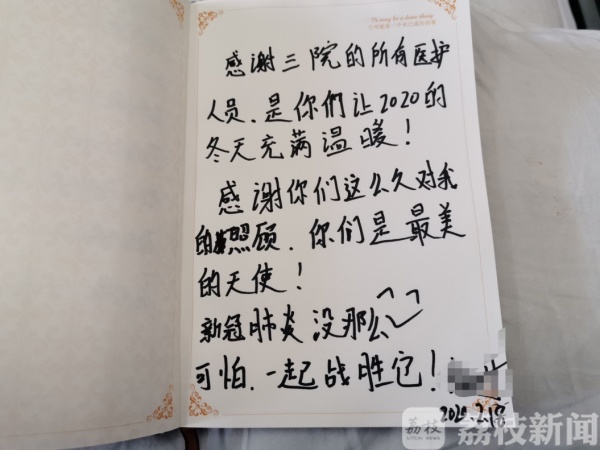 感谢三院的所有医护
人员，是你们让2020的
冬天充满温暖！
感谢你们这么久对我
的照顾，你们是最美
的天使！
新冠肺炎没那么
可怕，一起战胜它！
荔枝
荔枝新闻